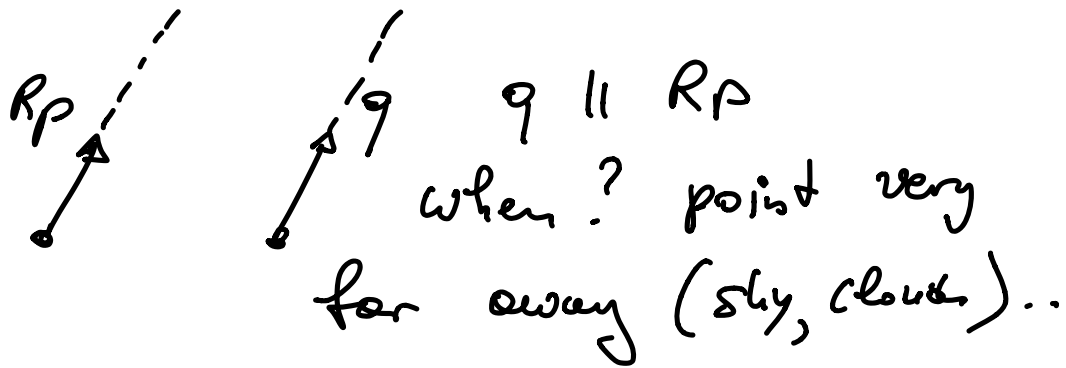 Rp q q || Rp
when? point very
far away (sky, clouds)...